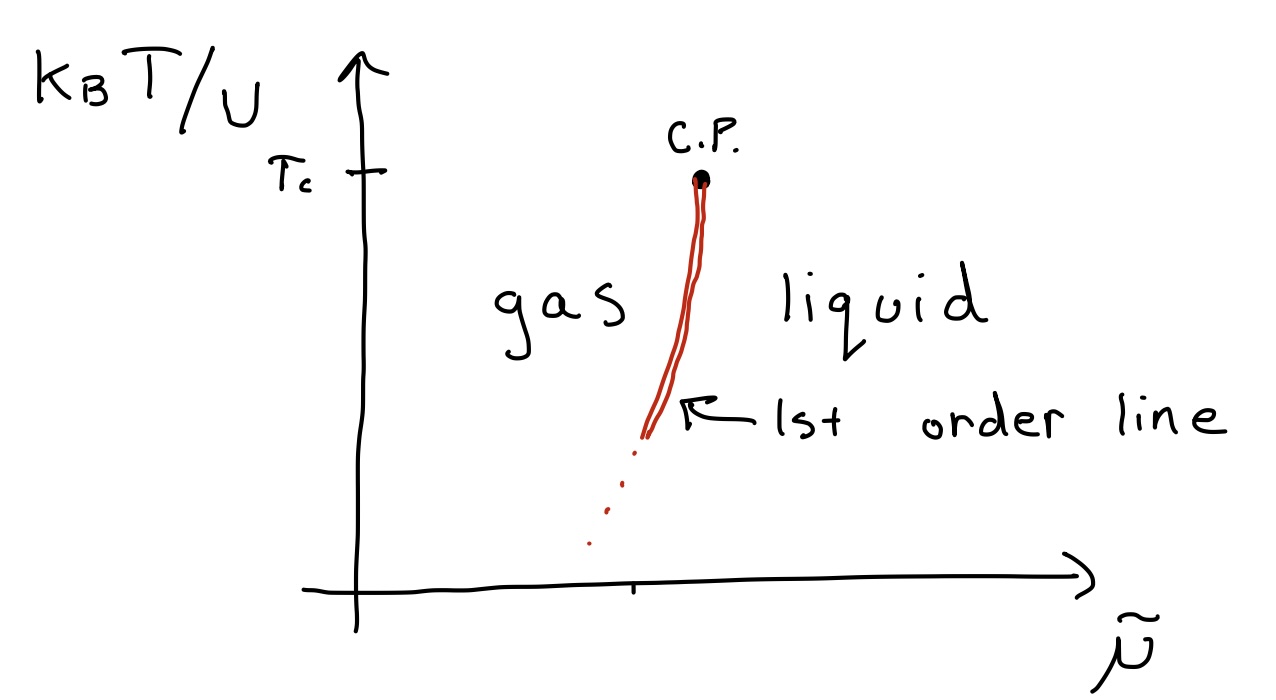 k_B T/U
T_c
C.P.
gas
liquid
1st order line
μ̃